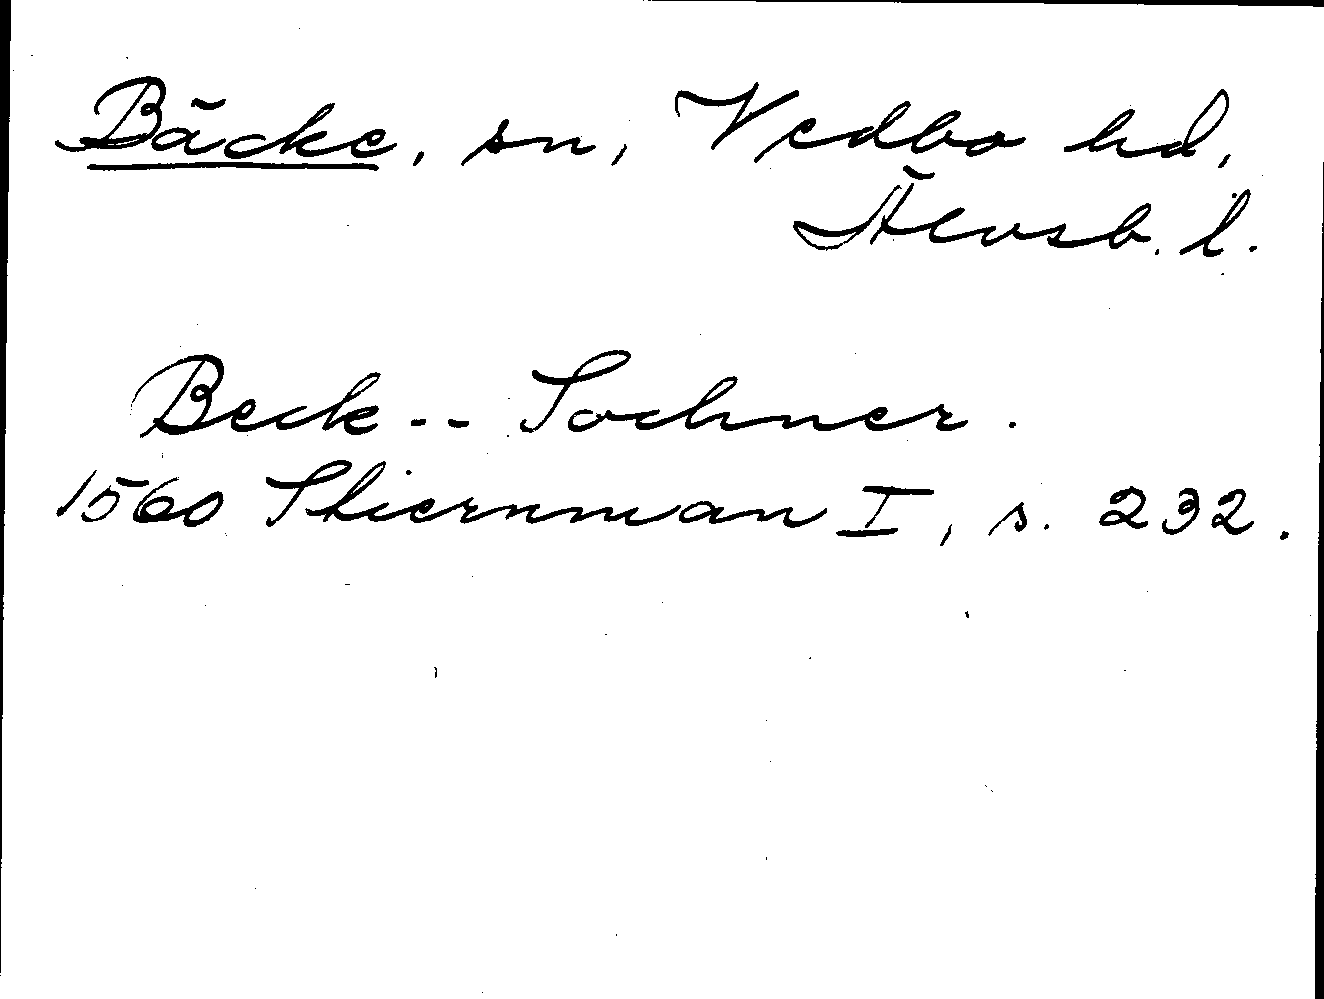 Bäcke, sn, Vedbo hd,
Älvsb. l.
Beck -- Sochner.
1560 Stiernman I, s. 232.